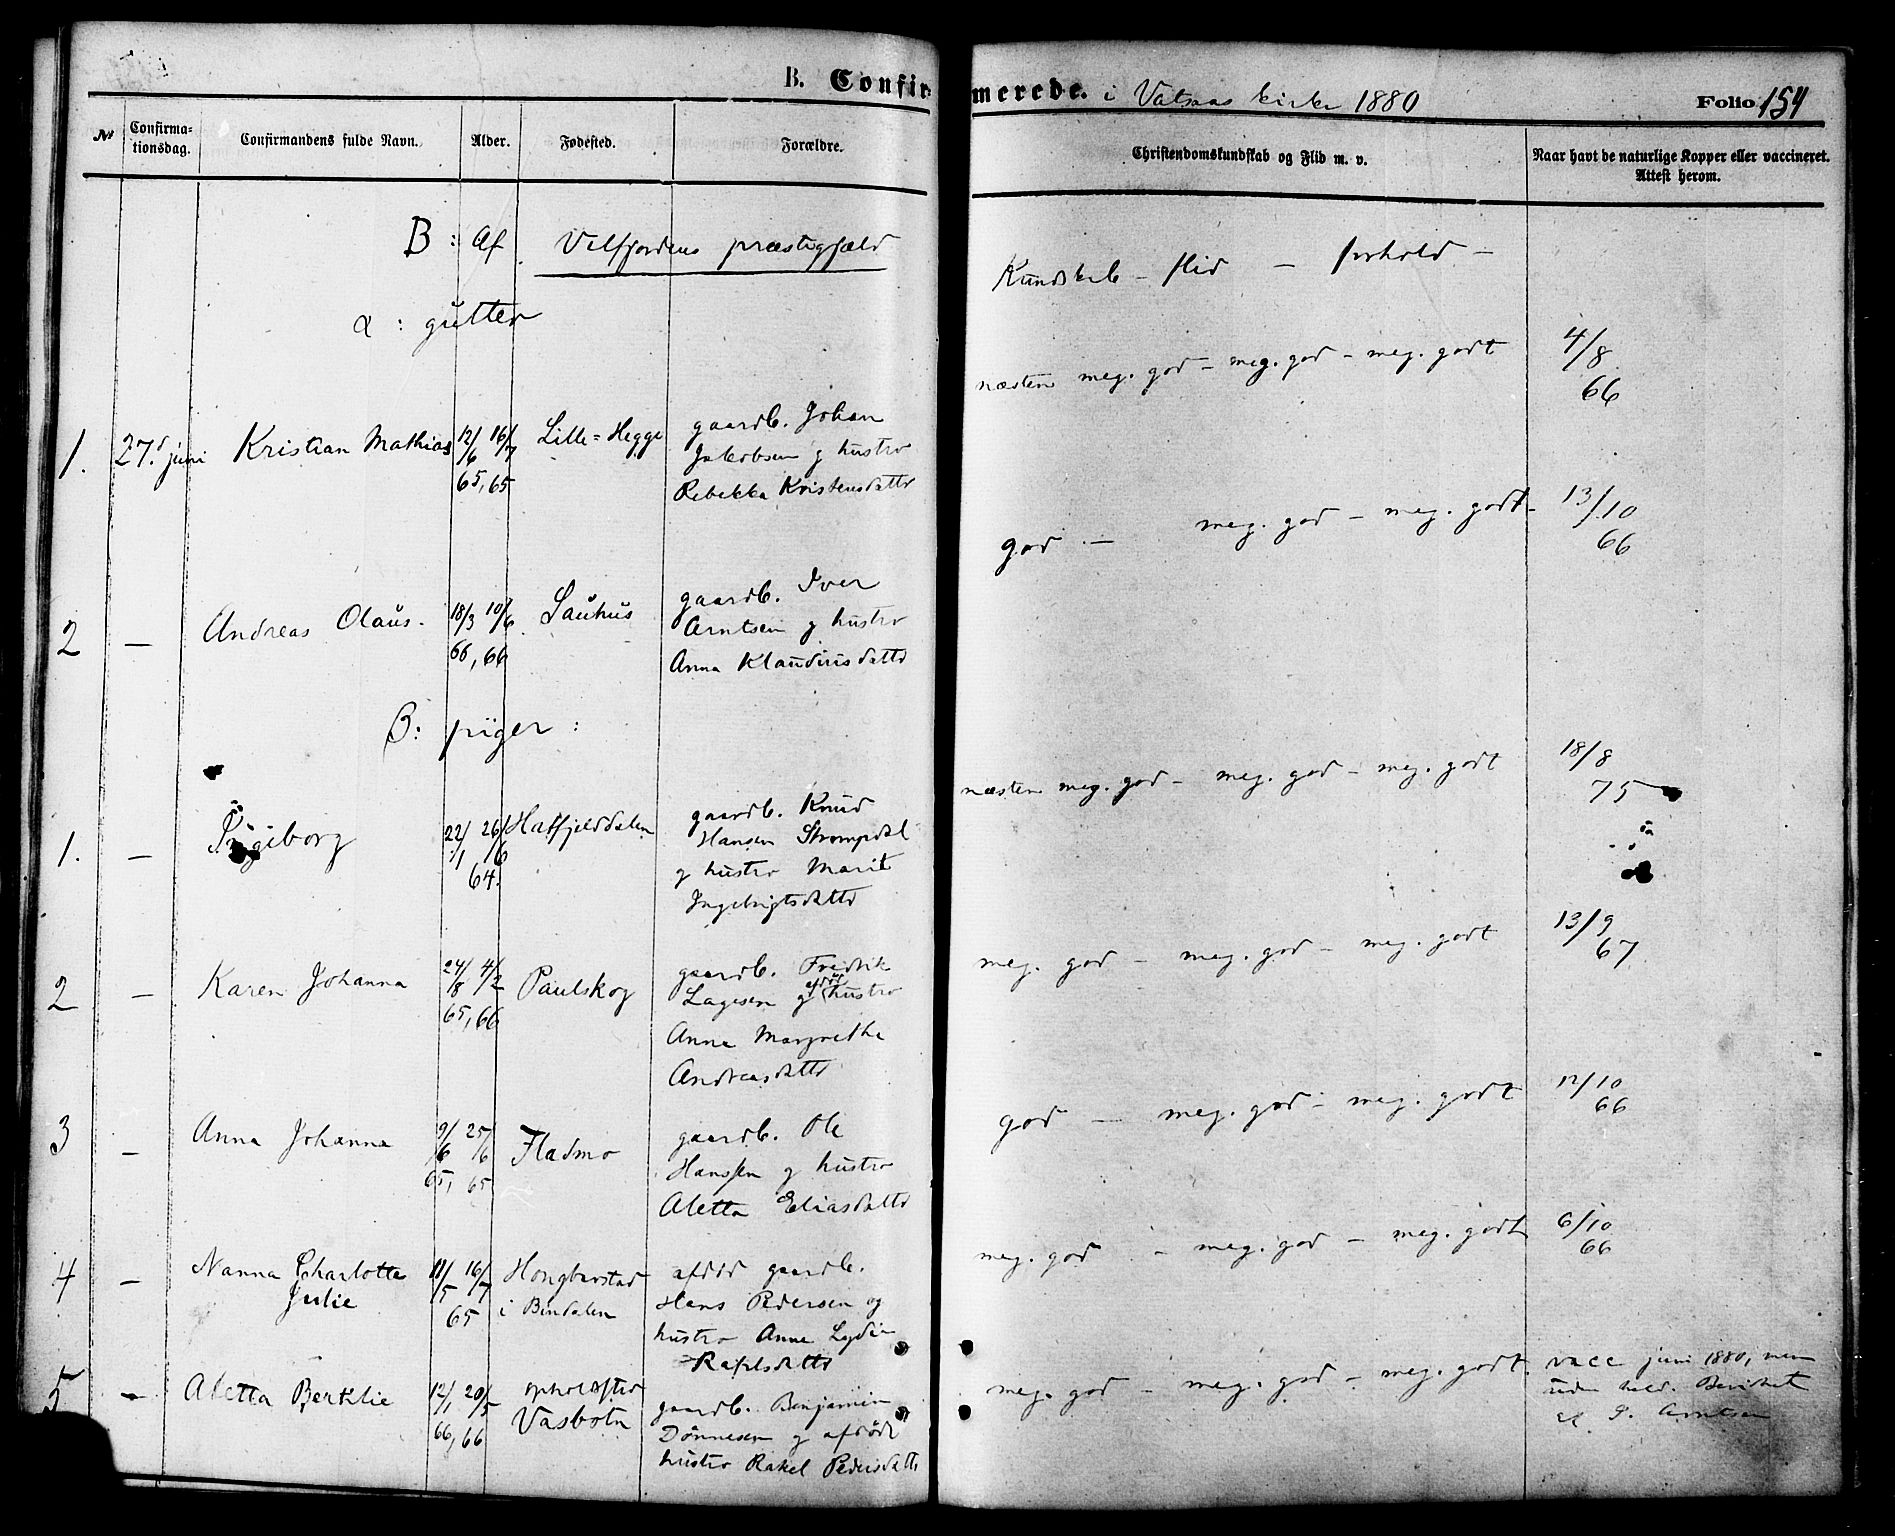 B. Confirmerede. i Vatsaas kirke 1880 Folio 154
№ Confirmationsdag. Confirmandens fulde Navn. Alder. Fødested. Forældre. Christendomskundskab og Flid m. v. Naar havt de naturlige Kopper eller vaccineret. Attest herom.
B: Af Velfjordens præstegjæld
Kundskab – flid – forhold –
α: gutter
1. 27. juni Kristian Mathias 12/6 65, 16/7 65 Lille=Hegge
gaardb. Johan
Jakobsen g hustro
Rebekka Kristensdattr
næsten meg. god – meg. god – meg. godt 4/8 66
2 – Andreas Olaus. 18/3 66, 10/6 66 Sauhus
gaardb. Iver
Arntsen g hustro
Anna Klaudiusdattr
god – meg. god – meg. godt – 13/10 66
β: piger:
1. – Ingiborg 22/1 26/6 64. Hatfjelddalen
gaardb. Knud
Hansen Strompdal
g hustro Marit
Ingebrigtsdattr
næsten meg. god – meg. god – meg. godt 18/8 75
2 – Karen Johanna 24/8 65, 4/2 66 Paulskog
gaardb. Fredrik
Lagesen g afdød hustro
Anna Margrethe
Andreasdattr
meg. god – meg. god – meg. godt 13/9 67
3 – Anna Johanna 9/6 65, 25/6 65 Fladmo
gaardb. Ole
Hansen g hustro
Aletta Eliasdattr
god – meg. god – meg. godt 12/10 66
4 – Nanna Charlotte
Julie 11/5 16/7 65
i Bindalen
afdød gaardb.
Hans Pedersen og
hustro Anne Lydia
Rafelsdattr
meg. god – meg. god – meg. godt 6/10 66
5 – Aletta Berklie 12/1 66, 20/5 66
Vasbotn
gaardb. Benjamin
Dønnesen g afdød
hustro Rakel Pedersdattr
meg. god – meg. god – meg. godt. vacc juni 1880, men
uden held.
Arntsen